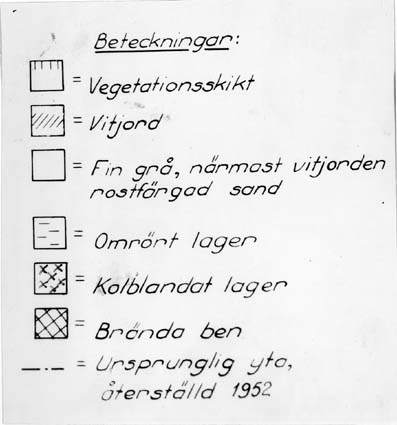 Beteckningar:
= Vegetationsskikt
= Vitjord
= Fin grå, närmast vitjorden
rostfärgad sand
= Omrört lager
= Kolblandat lager
= Brända ben
= Ursprunglig yta,
återställd 1952